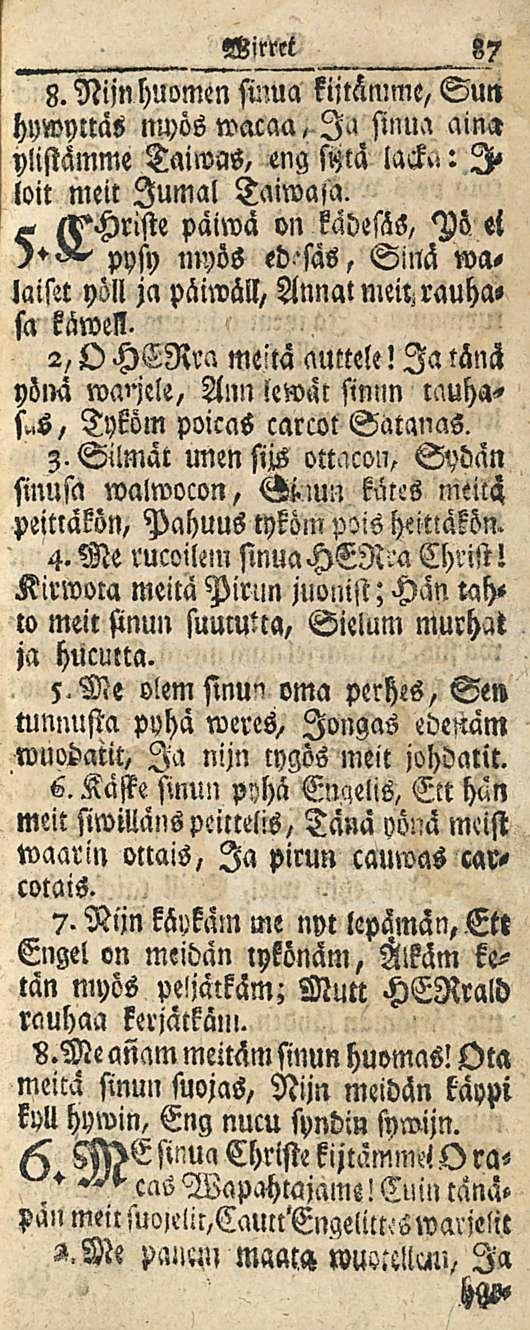 Wirret 87
8. Nijn huomen sinua kijtämme, Sun
hywyttäs myös wacaa, Ja sinua aina
ylistämme Taiwas, eng sijtä lacka: J-
loit meit Jumal Taiwasa.
5. CHriste päiwä on kädesäs, Yö ei
pysy myös edesäs, Sinä wa-
laiset yöll ja päiwäll, Annat meit, rauha-
sa käwell.
2, O HERra meitä auttele! Ja tänä
yönä warjele, Ann lewät sinun rauha-
sas, Tyköm poicas carcot Satanas.
3. Silmät unen sijs ottacon, Sydän
sinusa walwocon, Sinun kätes meitä
peittäkön, Pahuus tyköm pois heittäkön.
4. Me rucoilem sinua HERra Christ!
Kirwota meitä Pirun juonist; Hän tah-
to meit sinun suututta, Sielum murhat
ja hucutta.
5. Me olem sinun oma perhes, Sen
tunnusta pyhä weres, Jongas edestäm
wuodatit, Ja nijn tygös meit johdatit.
6. Käske sinun pyhä Engelis, Ett hän
meit siwilläns peittelis, Tänä yönä meist
waarin ottais, Ja pirun cauwas car-
cotais.
7. Nijn käykäm me nyt lepämän, Ett
Engel on meidän tykönäm, Älkäm ke-
tän myös peljätkäm; Mutt HERrald
rauhaa kerjätkäm.
8. Me añam meitäm sinun huomas! Ota
meitä sinun suojas, Nijn meidän käypi
kyll hywin, Eng nucu syndin sywijn.
6. ME sinua Christe kijtämme! O ra-
cas Wapahtajame! Cuin tänä-
pän meit suojelit, Cautt' Engelittes warjelit
2. Me panem maata wuotellem, Ja